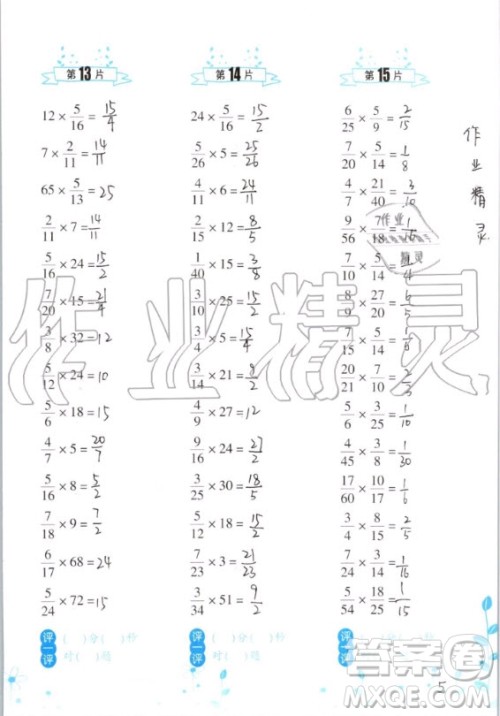 第13片
12 × 5/16 = 15/4
7 × 2/11 = 14/11
65 × 5/13 = 25
2/11 × 7 = 14/11
5/16 × 24 = 15/2
7/20 × 15 = 21/4
3/8 × 32 = 12
5/12 × 24 = 10
5/6 × 18 = 15
5/7 × 4 = 20/7
5/16 × 8 = 5/2
7/18 × 9 = 7/2
6/17 × 68 = 24
5/24 × 72 = 15
评一评
( )分( )秒
对( )题
第14片
24 × 5/16 = 15/2
5/26 × 5 = 25/26
4/11 × 6 = 24/11
2/15 × 12 = 8/5
1/40 × 15 = 3/8
3/10 × 25 = 15/2
3/4 × 5 = 15/4
3/14 × 21 = 9/2
4/9 × 27 = 12
9/16 × 24 = 27/2
3/25 × 30 = 18/5
5/12 × 18 = 15/2
7/23 × 3 = 21/23
3/34 × 51 = 9/2
评一评
( )分( )秒
对( )题
第15片
6/25 × 5/9 = 2/15
7/20 × 5/14 = 1/8
4/7 × 21/40 = 3/10
9/56 × 7/18 = 1/16
7/10 × 5/14 = 1/4
8/9 × 27/20 = 6/5
5/7 × 14/25 = 2/5
7/10 × 20/21 = 2/3
5/6 × 3/25 = 1/10
4/45 × 3/8 = 1/30
17/60 × 10/17 = 1/6
3/4 × 8/15 = 2/5
7/24 × 3/14 = 1/16
5/54 × 18/25 = 1/15
作业精灵
作业精灵
答案圈
MXQE.COM
5